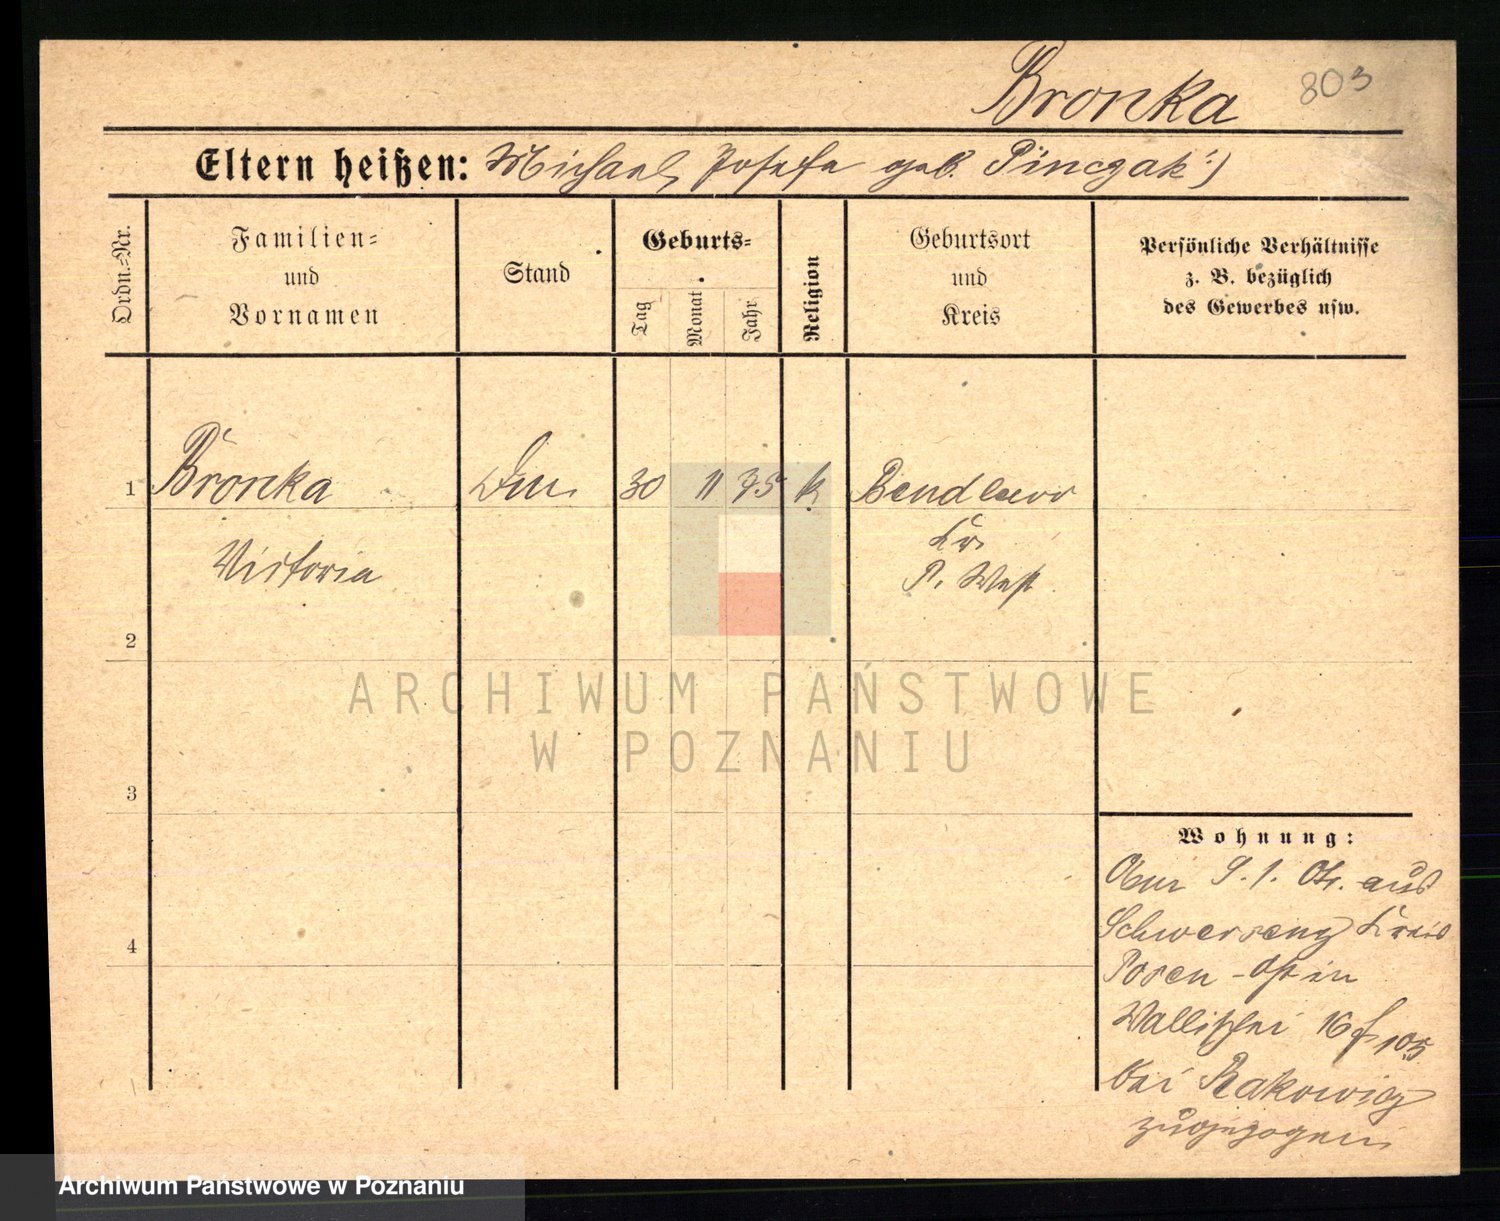 Bronka 803
Eltern heißen: Michael, Josefa geb. Pinczak :)
Ordn.=Nr.
Familien=
und
Vornamen
Stand
Geburts=
Tag
Monat
Jahr
Religion
Geburtsort
und
Kreis
Persönliche Verhältnisse
z. B. bezüglich
des Gewerbes usw.
1 Bronka 30 11 75 k Bendlewo
Victoria
Kr.
P. West
2
3
4
Wohnung:
1. aus
Schwersenz Kreis
Posen-Ost in
Wallischei 16
bei Rakowicz
zugezogen.
ARCHIWUM PAŃSTWOWE
W POZNANIU
Archiwum Państwowe w Poznaniu